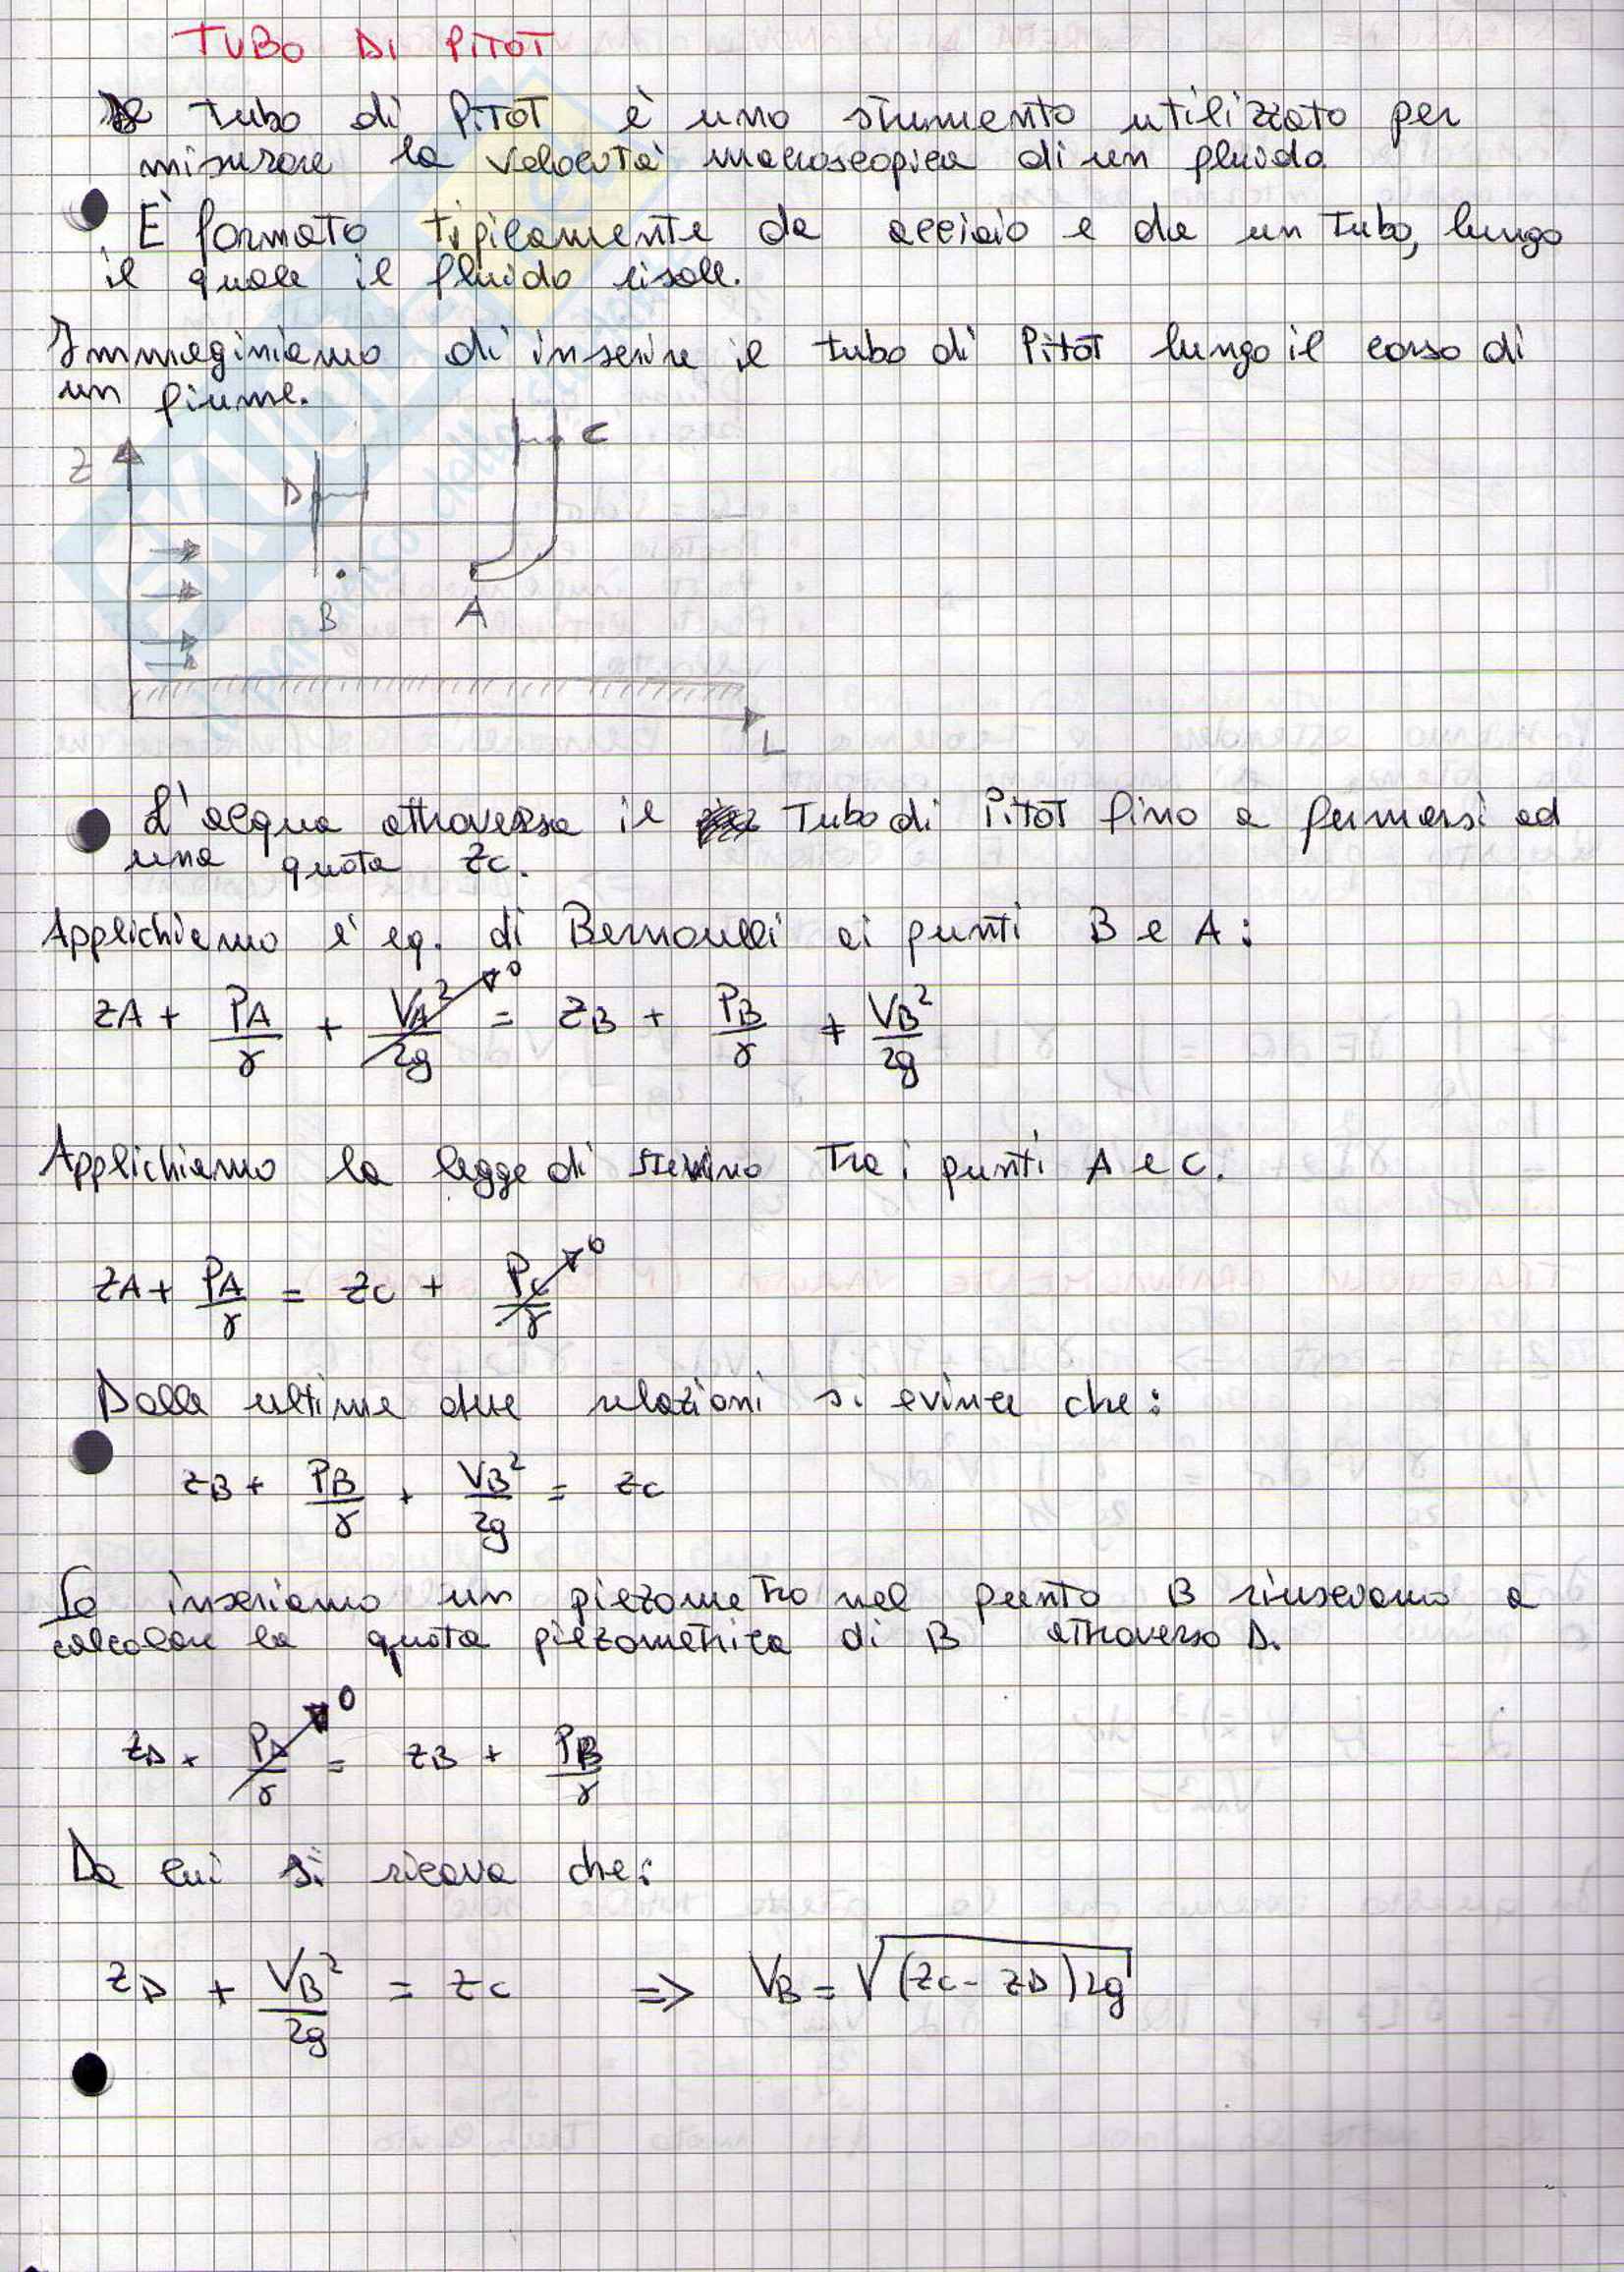 TUBO DI PITOT
Il tubo di PITOT è uno strumento utilizzato per
misurare la velocità macroscopica di un fluido
È formato tipicamente da acciaio e da un tubo, lungo
il quale il fluido risale.
Immaginiamo di inserire il tubo di PITOT lungo il corso di
un fiume.
C
Z
D
B A
L
L'acqua attraversa il Tubo di PITOT fino a fermarsi ad
una quota zc.
Applichiamo l'eq. di Bernoulli ai punti B e A:
zA + PA/γ + VA²/2g → 0 = zB + PB/γ + VB²/2g
Applichiamo la legge di Stevino tra i punti A e C.
zA + PA/γ = zC + PC/γ → 0
Dalle ultime due relazioni si evince che:
zB + PB/γ + VB²/2g = zC
Se inseriamo un piezometro nel punto B riusciamo a
calcolare la quota piezometrica di B attraverso D.
zD + PD/γ → 0 = zB + PB/γ
Da cui si ricava che:
zD + VB²/2g = zC => VB = √(zC - zD)2g